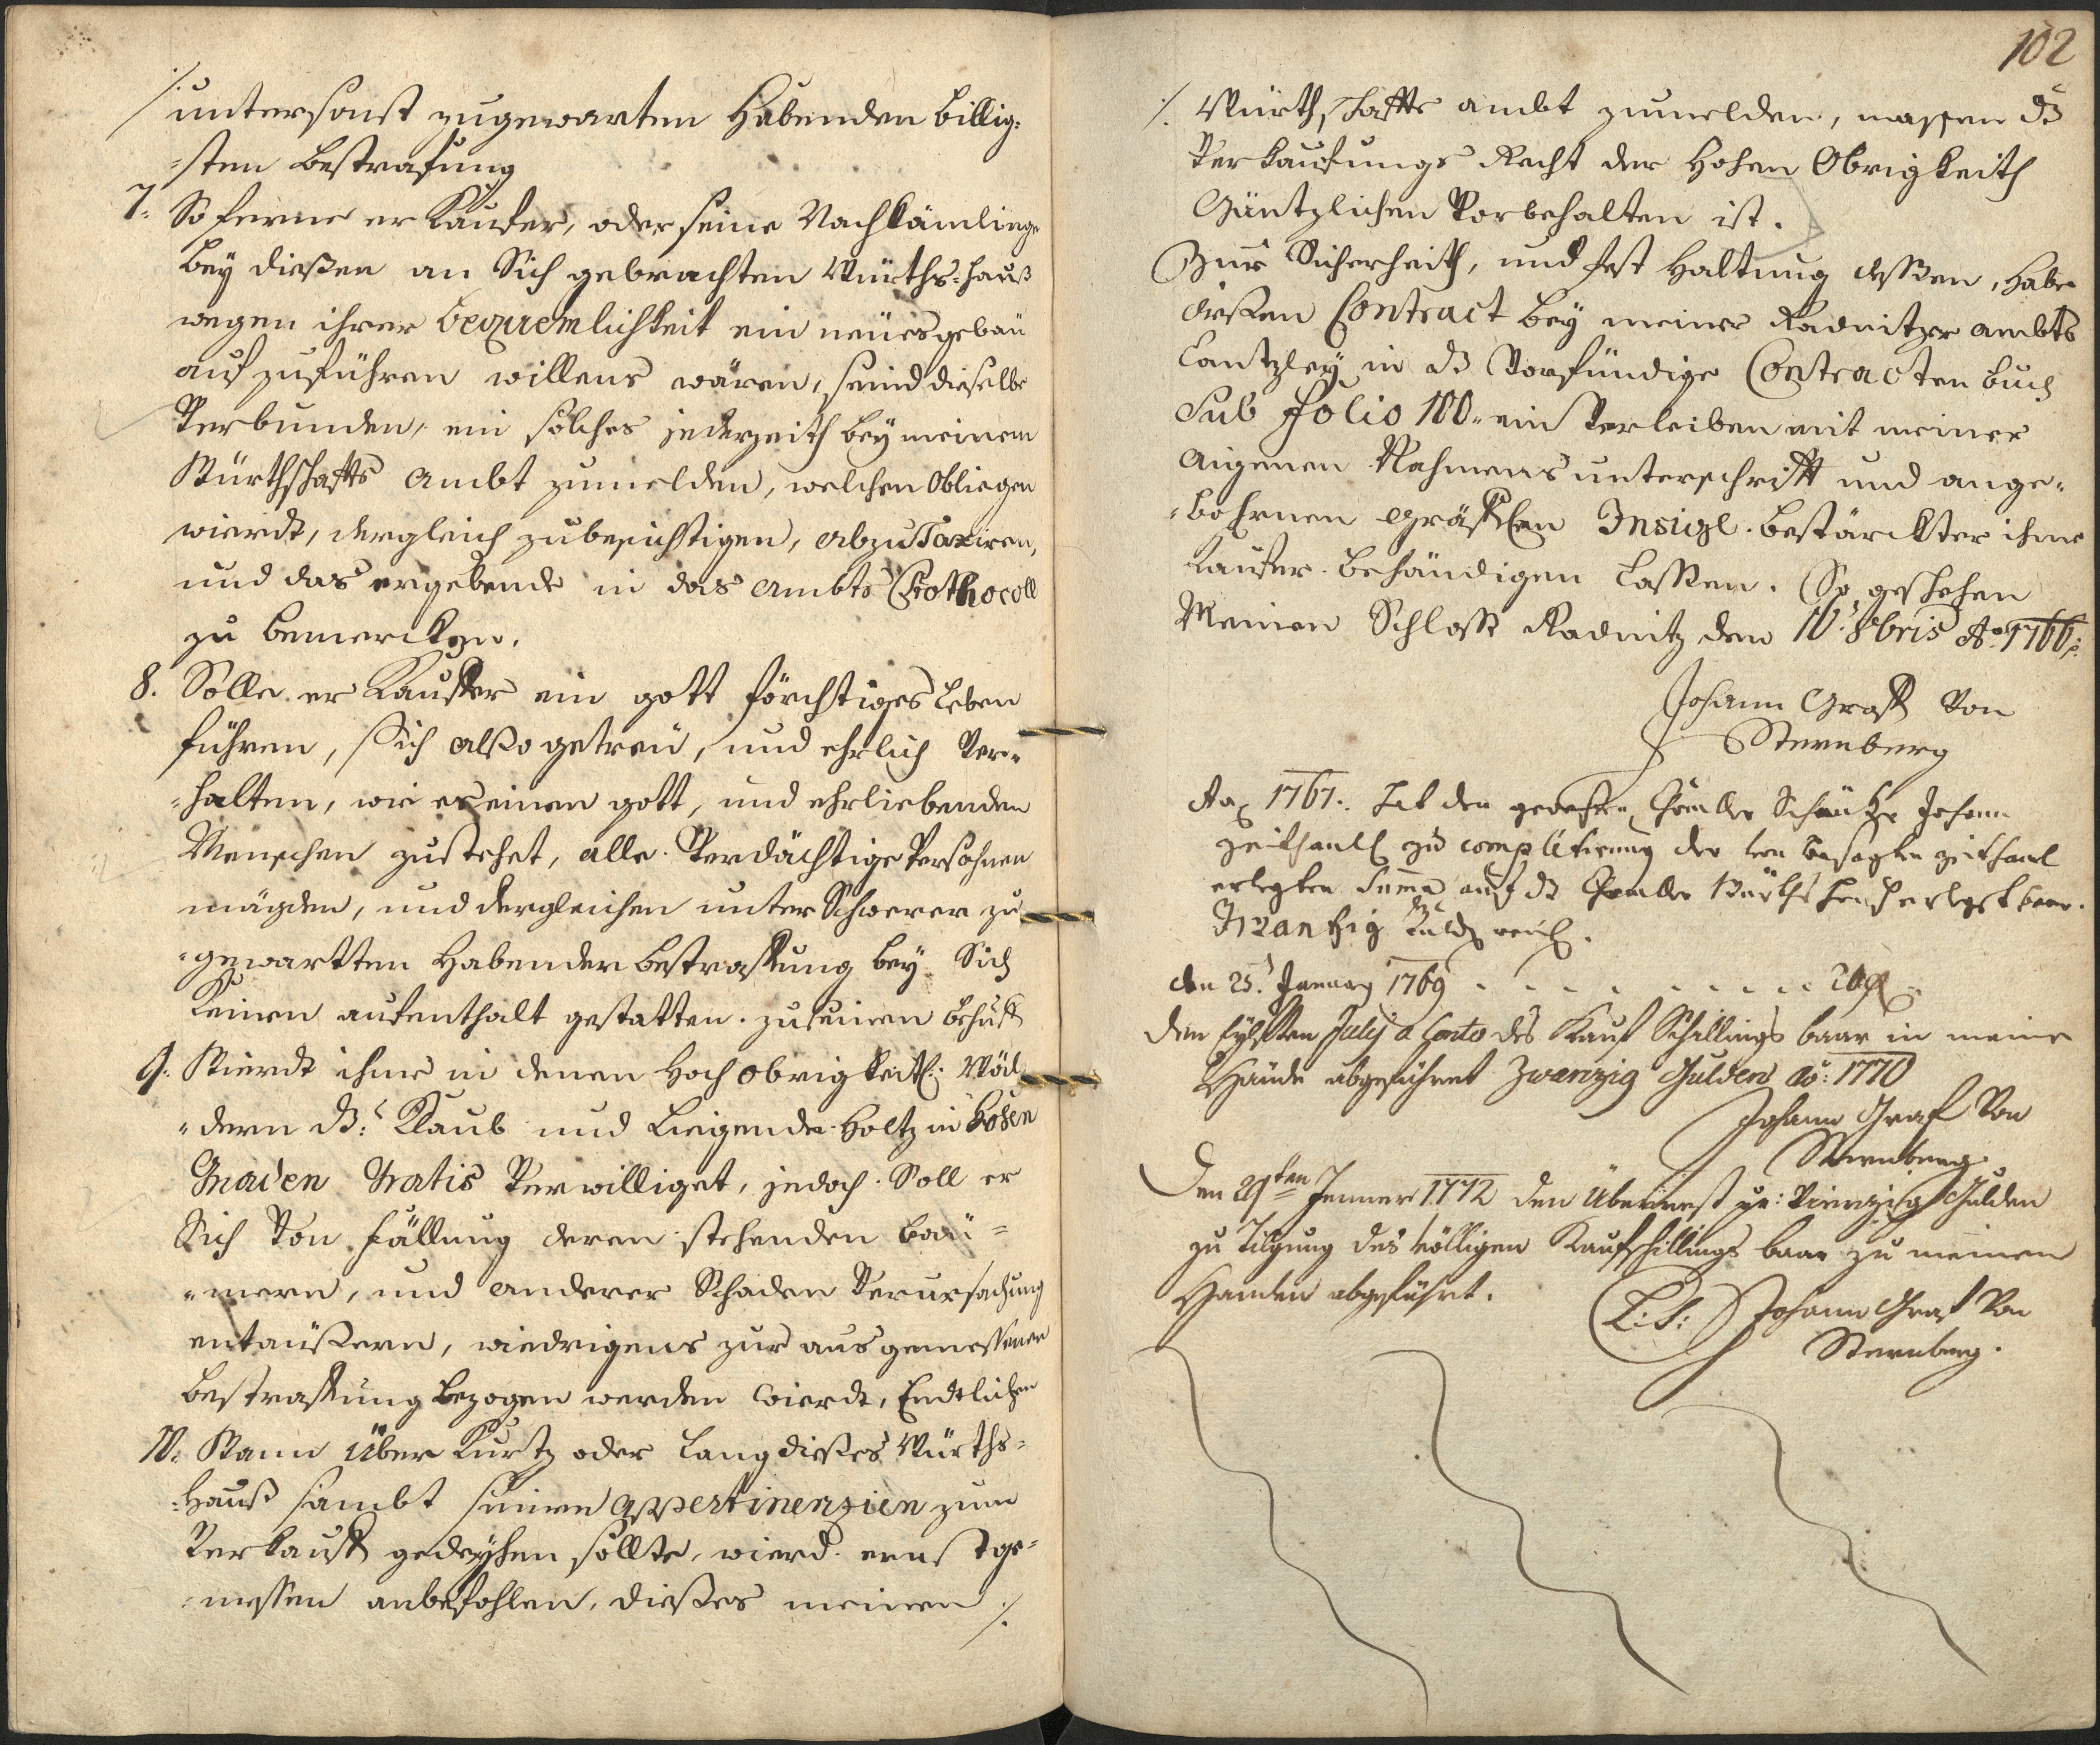 untersonst zugewarten habenden billig=
=sten bestrafung
7. So ferne er Kaufer, oder seine Nachkömlinge
bey dießen an Sich gebrachten Würths=hauß
wegen ihrer beqvemlichkeit ein neües gebaü
auf zuführen willens wären, seind dieselbe
Verbunden, ein solches jederzeith bey meinem
Würthschaffts ambt zumelden, welchen obliegen
wierdt, dergleich zubesichtigen, abzuTaxiren,
und das ergebende in das ambts Prothocoll
zu bemercken.
8. Solle er Kauffer ein gott förchtiges leben
führen, Sich alßo getreü, und ehrlich Ver=
=halten, wie es einen gott, und ehrliebenden
Menschen zustehet, alle Verdächtige Persohnen
mägden, und dergleichen unter Schwerer zu
=gewartten habender bestraffung bey Sich
Keinen aufenthalt gestatten. zu seinen behuff
9. Wierdt ihme in denen hoch obrigkeitl: Wäl
=dern dz Klaub und Liegende holtz in hohen
Gnaden Gratis Verwilliget, jedoch Soll er
Sich Von fällung deren stehenden baü=
=mern, und anderer Schaden Verursachung
entaüßern, wiedrigens zur ausgemessener
bestraffung bezogen werden wierdt, Endtlichen
10. Wann über Kurtz oder lang dießes Würths=
=hauß sambt seinen appertinenzien zum
Verkauff gedeyhen sollte, wierd ernst ge=
=messen anbefohlen, dießes meinen ./.
102
./. Würthschaffts ambt zumelden, massen dz
Verkaufungs Recht der hohen Obrigkeith
Gäntzlichen Vorbehalten ist.
Zur Sicherheith, und fest haltung dessen, habe
dießen Contract bey meiner Radnitzer ambts
Cantzley in dz Vorfündige Contracten buch
Sub Folio 100. ein Verleiben mit meiner
aigenen Nahmens unterschrifft und ange=
=bohrnen gräffl:en Insigl bestärckter ihme
Kaufer behändigen lassen. So geschehen
Meinen Schloss Radnitz den 10. 8bris Ao 1766.
Johann Graff Von
Sternberg
Ao 1767. Hat den Schäncke Johann
zu completirung der besagten
erlegten Suma auf dz Würths hauß erlegt baar
Zwantzig
den 25. January 1769 . . . . . . . . . . 20 fl
den Eylfften Julij a Conto des Kauf Schillings baar in meine
Hände abgeführet Zwanzig Gulden ao: 1770
Johann Graf Von
Sternberg.
Den 29ten Jenner 1772 den Überrest pr: Vierzig Gulden
zu Tilgung des völligen Kaufschillings baar zu meinen
Handen abgeführt.
L:S: Johann Graf Von
Sternberg.